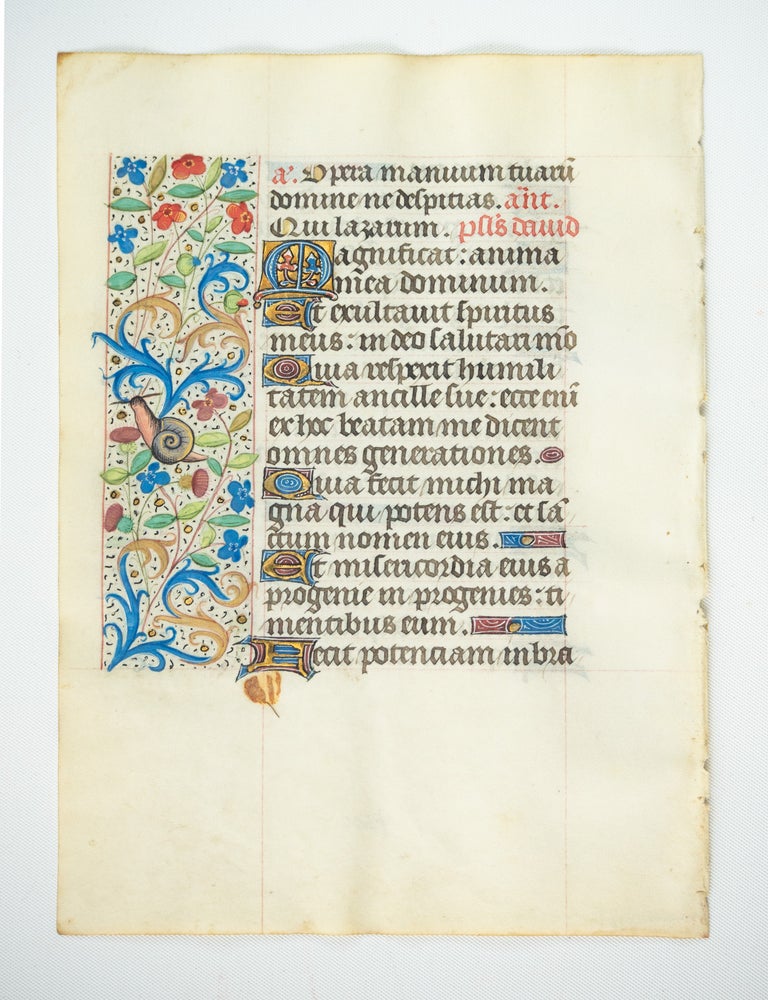 a͂. Opera manuum tuarū
domine ne despicias. añt.
Qui lazarum. psl̃s dauid
Magnificat: anima
mea dominum.
Et exultauit spiritus
meus: in deo salutari m̃o
Quia respexit humili
tatem ancille sue: ecce eni͂
ex hoc beatam me dicent
omnes generationes.
Quia fecit michi ma
gna qui potens est: et sā
ctum nomen eius.
Et misericordia eius a
progenie in progenies: ti
mentibus eum.
Fecit potenciam in bra